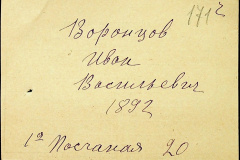 1712
Воронцов
Иван
Васильевич
1892
1я Песчаная 20